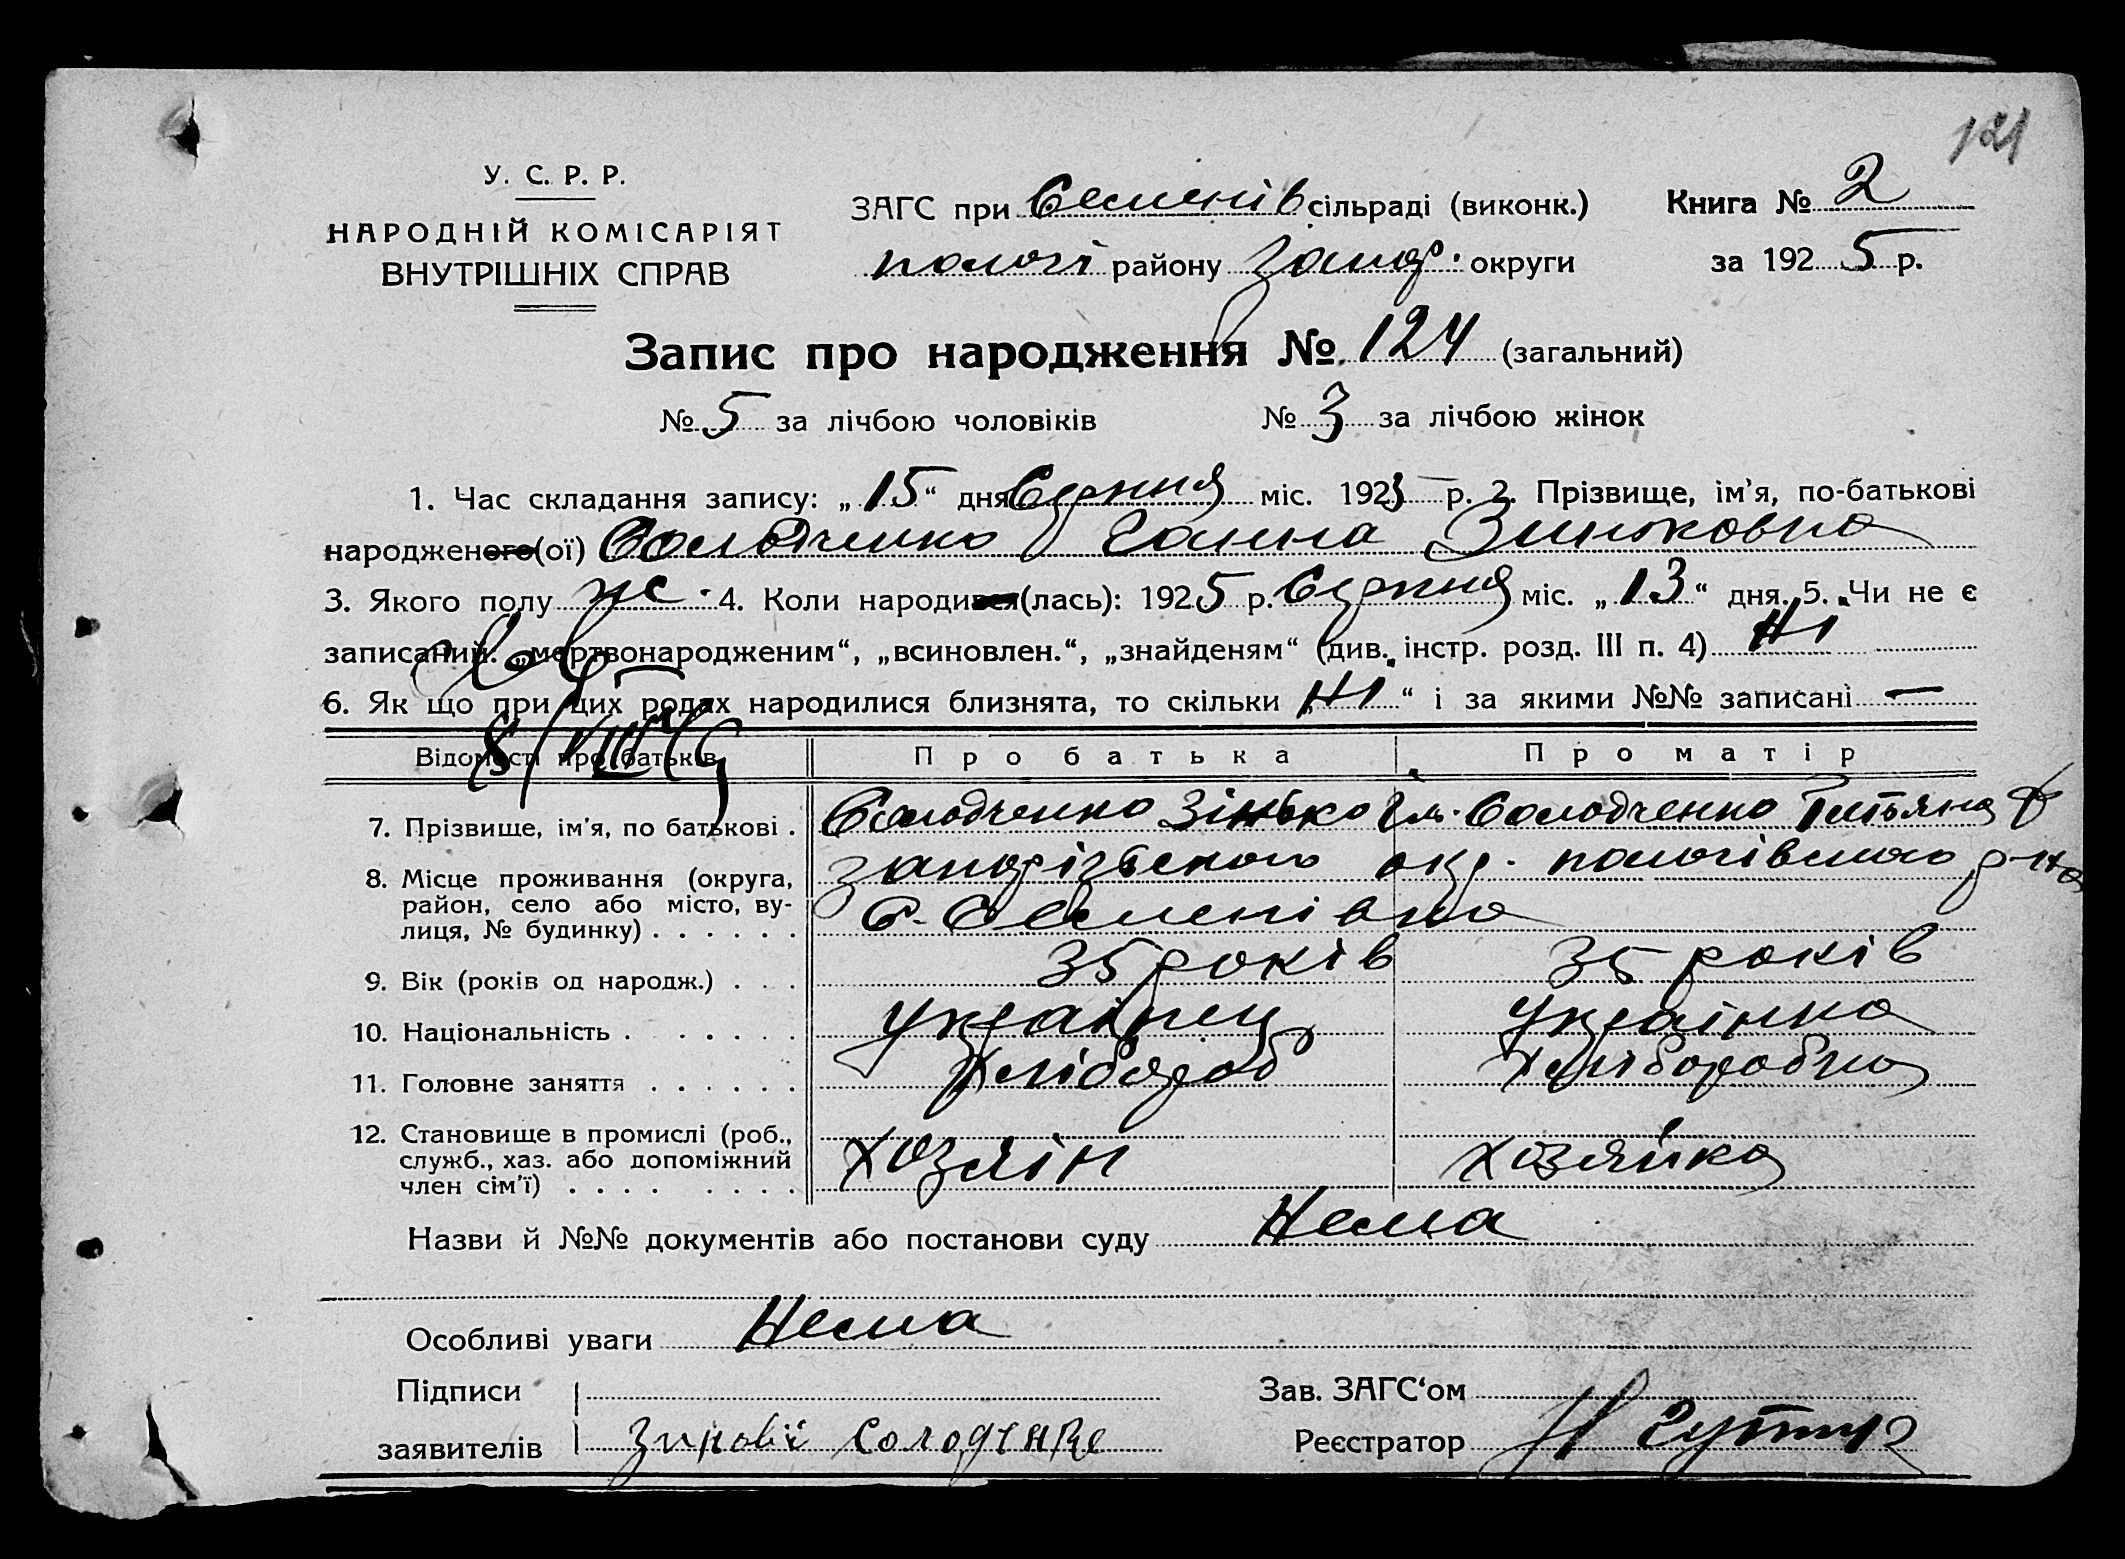 121
У. С. Р. Р.
НАРОДНІЙ КОМІСАРІЯТ
ВНУТРІШНІХ СПРАВ
ЗАГС при Семенів сільраді (виконк.)
пологі району Запор. округи
Книга № 2
за 1925 р.
Запис про народження № 124 (загальний)
№ 5 за лічбою чоловіків № 3 за лічбою жінок
1. Час складання запису: „15“ дня Серпня міс. 1925 р. 2. Прізвище, ім'я, по-батькові
народженого(ої) Солодченко Ганна Зиньковна
3. Якого полу ж. 4. Коли народився(лась): 1925 р. Серпня міс. „13“ дня. 5. Чи не є
записаний: „мертвонародженим“, „всиновлен.“, „знайденям“ (див. інстр. розд. III п. 4) Ні
6. Як що при цих родах народилися близнята, то скільки „Ні“ і за якими №№ записані —
Відомості про батьків Про батька Про матір
7. Прізвище, ім'я, по батькові . Солодченко Зінько Солодченко Татьяна
8. Місце проживання (округа, запорізького окр. пологівського р-на
район, село або місто, ву-
лиця, № будинку) . . . . . . С. Семенівка
9. Вік (років од народж.) . . . 35 років 35 років
10. Національність . . . . . . Українец Українка
11. Головне заняття . . . . . . Хлібороб Хліборобка
12. Становище в промислі (роб.,
служб., хаз. або допоміжний хозяїн хозяйка
член сім'ї) . . . . . . . .
Назви й №№ документів або постанови суду Нема
Особливі уваги Нема
Підписи Зав. ЗАГС‘ом
заявителів Солодченко Реєстратор